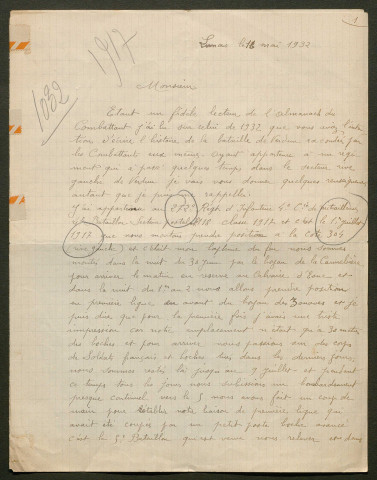 1
1917
1082
le 16 mai 1932
Monsieur
Etant un fidèle lecteur de l'almanach du
Combattant j'ai lu sur celui de 1932 que vous avez l'inten
tion d'écrire l'histoire de la bataille de Verdun racontée par
les Combattants eux mêmes. ayant appartenu à un régi
ment qui a passé quelques temps dans le secteur rive
gauche de Verdun je vais vous donner quelques renseignements
autant que je puisse me rappeller
J'ai appartenu 273e Regt d'Infanterie Cie de
Bataillon Secteur postal 118 classe 1917 et c'est le 1er juillet
1917 que nous montons prendre position à la Cote 304
(rive gauche) et c'était mon baptême du feu nous sommes
montés dans la nuit du 30 juin par le boyau de la
pour arriver le matin en reserve au Calvaire d'Esnes et
dans la nuit du 1er au 2 nous allons prendre position
en première ligne en avant du boyau des Zouaves et je
puis dire que pour la première fois j'avais une triste
impression car notre emplacement n'était qu'à 30 mètres
des boches et pour arriver nous passions sur des corps
de Soldats français et boches tués dans les derniers jours
nous sommes restés là jusqu'au 9 juillet et pendant
ce temps tous les jours nous subissions un bombardement
presque continuel. vers le 5 nous avons fait un coup de
main pour rétablir notre liaison de première ligne qui
avait été coupée par un petit poste boche avancé
c'est le 5e Bataillon qui est venu nous relever